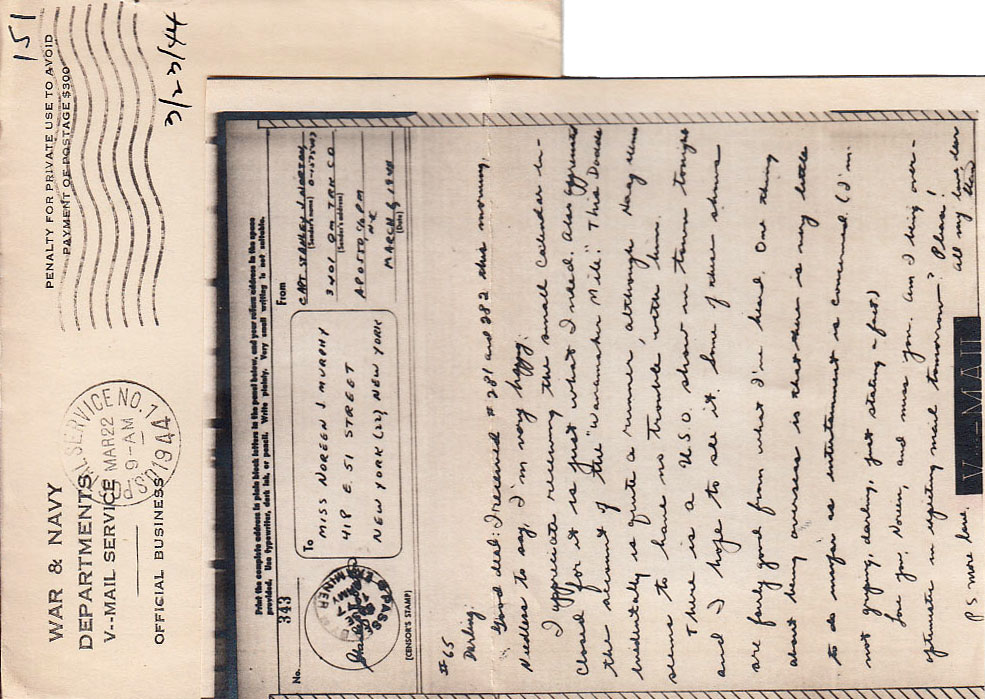 151
3/23/44
PENALTY FOR PRIVATE USE TO AVOID
PAYMENT OF POSTAGE $300
WAR & NAVY
DEPARTMENTS
V--MAIL SERVICE
OFFICIAL BUSINESS
POSTAL SERVICE NO. 1
MAR 22
9-AM
1944
Print the complete address in plain block letters in the panel below, and your return address in the space
provided. Use typewriter, dark ink, or pencil. Write plainly. Very small writing is not suitable.
No.
343
To
MISS NOREEN J. MURPHY
418 E. 51 STREET
NEW YORK (22) NEW YORK
From
CAPT. STANLEY J.
(Sender's name)
3401 ORD TRK CO
(Sender's address)
APO 550 % PM
N.Y.
MARCH 6, 1944
(Date)
PASSED BY
EXAMINER
(CENSOR'S STAMP)
#65
Darling:
Good deal: I received #281 and 282 this morning.
Needless to say, I'm very happy.
I appreciate receiving the small calendar in-
closed for it is just what I need. Also appreciated
the account of the "Wanamaker Mile". This Dodds
incidentally is quite a runner, although Haag
seems to have no trouble with him.
There is a U.S.O. show in town tonight
and I hope to see it. Some of these shows
are fairly good from what I've heard. One thing
about being overseas is that there is very little
to do insofar as entertainment is concerned. (I'm
not griping, darling, just stating a fact)
Love you, Noreen, and miss you. Am I being over-
optimistic in expecting mail tomorrow? Please!
All my love, dear
Stan
PS more love.
V-MAIL